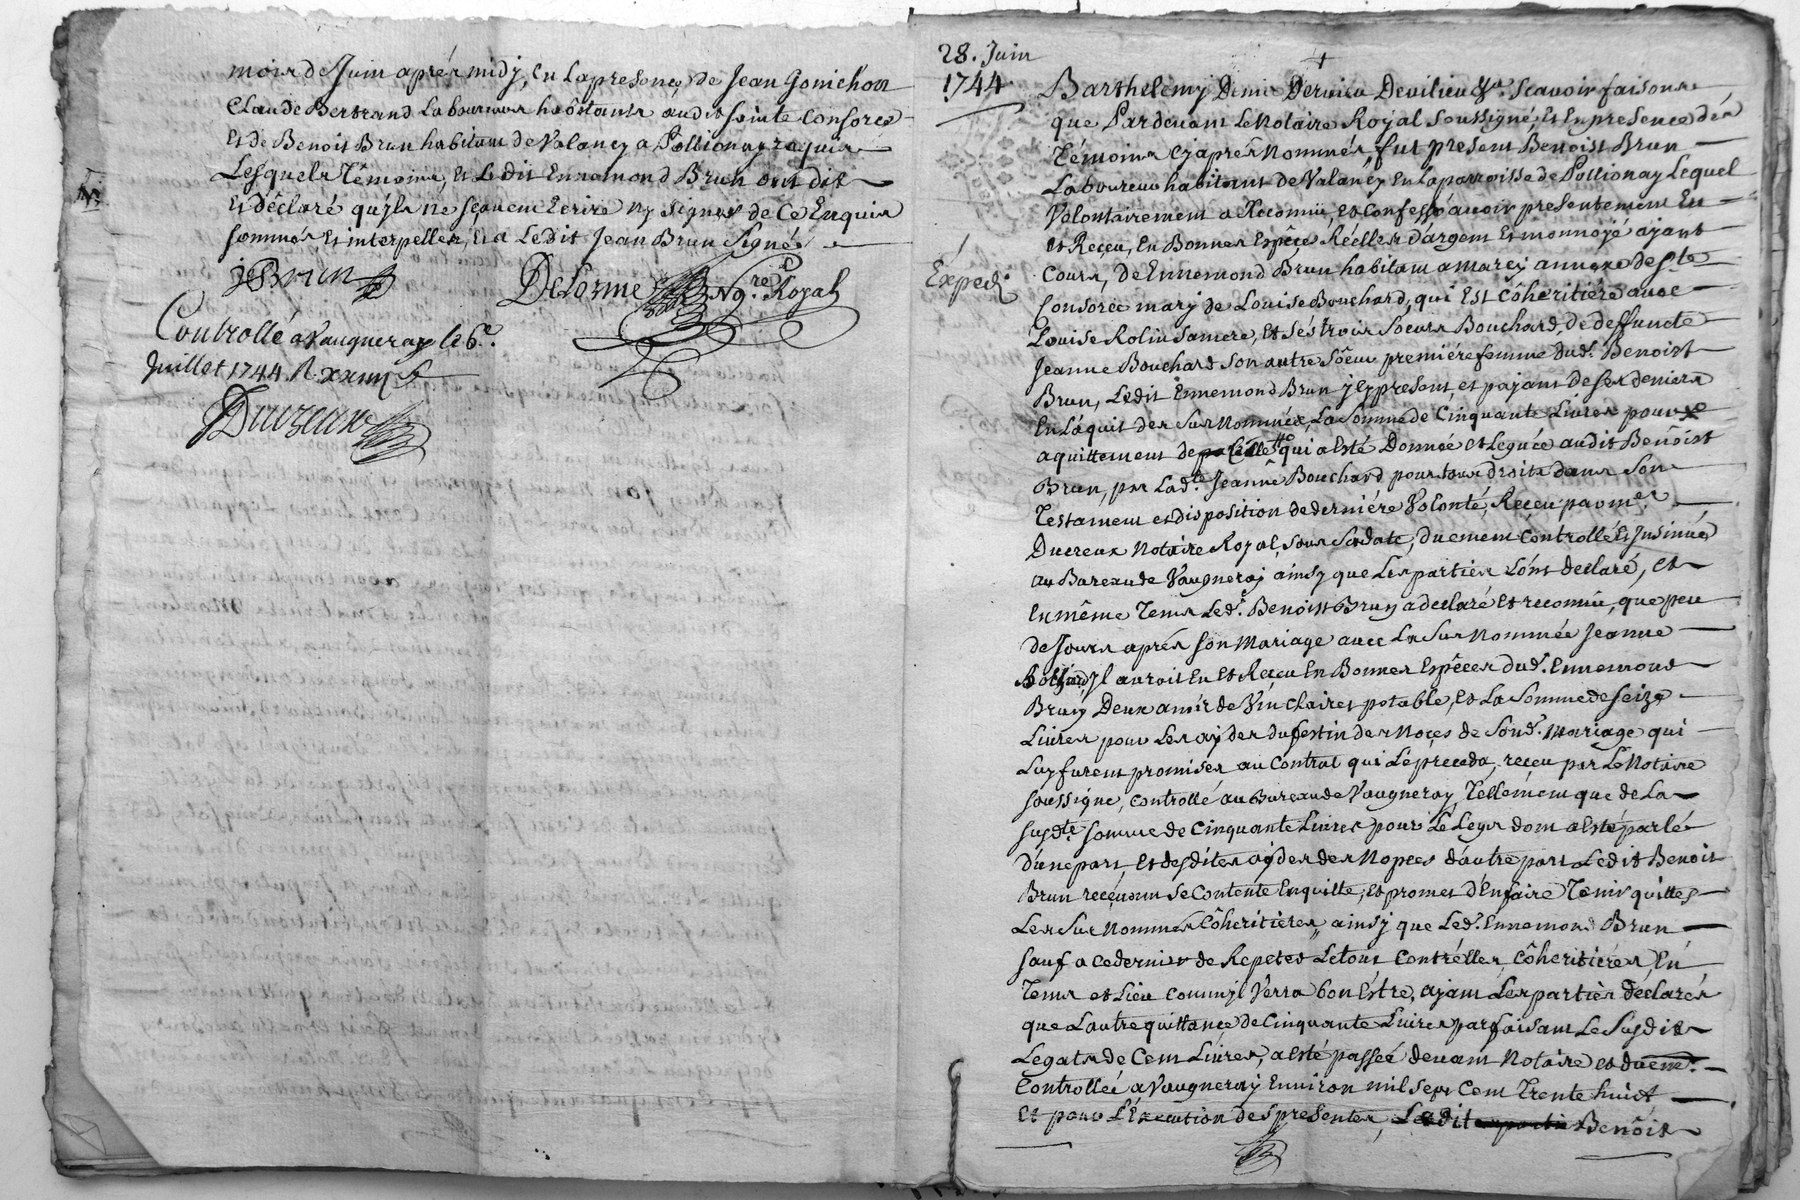 mois de Juin aprés midy, en la presence de Jean Gonichon
Claude Bertrand Laboureurs habitants audit sainte Consorce
Et de Benoit Brun habitant de Valancy a Pollionay requis
Lesquels Témoins, et Ledit Ennemond Brun ont dit
et déclaré qu'yls ne sçavent Ecrire ny signer de ce Enquis
sommés et interpellés, et a Ledit Jean Brun signé
J Brun
Delorme No.re Royal
Controllé a Vaugneray le 6.e
Juillet 1744 R. xxiiij s
Ducreux
28. Juin
1744
Expedé
Barthelemy Denis Dervieu Devilieu Scavoir faisons
que Pardevant Le Notaire Royal soussigné et En presence dés
Témoins cy aprés Nommés fut présent Benoist Brun
Laboureur habitant de Valancy en la parroisse de Pollionay Lequel
Volontairement a Reconnü, et Confessé avoir presentement Eu
et Reçeu, en Bonnes Espêce Réelles d'argent et monnoyé ajant
Cours, de Ennemond Brun habitant a Marcy annexe de s.te
Consorce mary de Louise Bouchard, qui Est Côheritiére avec
Louise Rolin sa mere, et sés trois soeurs Bouchard, de deffuncte
Jeanne Bouchard son autre sôeur premiére femme dud. Benoist
Brun, Ledit Ennemond Brun jcy present, et pajant de ses deniers
en L'aquit des sus Nommées, La somme de Cinquante Livres pour
aquittement de Celle qui a Esté Donnée et Leguée audit Benôist
Brun, par Lad.te Jeanne Bouchard pour tous droits dans son
Testament et disposition de derniére Volonté, Reçeu par m.er
Ducreux Notaire Royal, sous sa date, duement Controllé et Insinué
au Bureau de Vaugneray ainsy que Les parties L'ont declaré, et
En même Tems Led. Benoist Brun a declaré et reconnü, que peu
de Jours aprés son Mariage avec La sus Nommée Jeanne
Bouchard Jl auroit Eu et Reçeu En Bonnes Espêces dud. Ennemond
Brun Deux de Vin Clairet potable, et La somme de seize
Livres pour Les ayder du festin des Noçes de Sond. Mariage qui
Luy furent promises au Contrat qui Le preceda, reçeu par Le Notaire
soussigné, controllé au Bureau de Vaugneray, Tellement que de La
susd.te somme de Cinquante Livres pour Le Legs dont a esté parlé
d'une part, et desdites ayder des Nopces d'autre part Ledit Benoit
Brun se Contente En quitte, et promet d'En faire Tenir quittes
Les sus Nommés Côheritiéres, ainsy que Led. Ennemond Brun
sauf a ce dernier de Repeter Le tout Contr'elles Côheritiéres En
Tems et Lieu comm'jl Verra bon Estre, ajant Les parties déclarés
que L'autre quittance de Cinquante Livres parfaisant Le Susdit
Legat de Cent Livres, a esté passée devant Notaire et duem.t
Controllée a Vaugneray Environ mil sept Cent Trente huict
Et pour L'Execution des presentes, Ledit Benôit